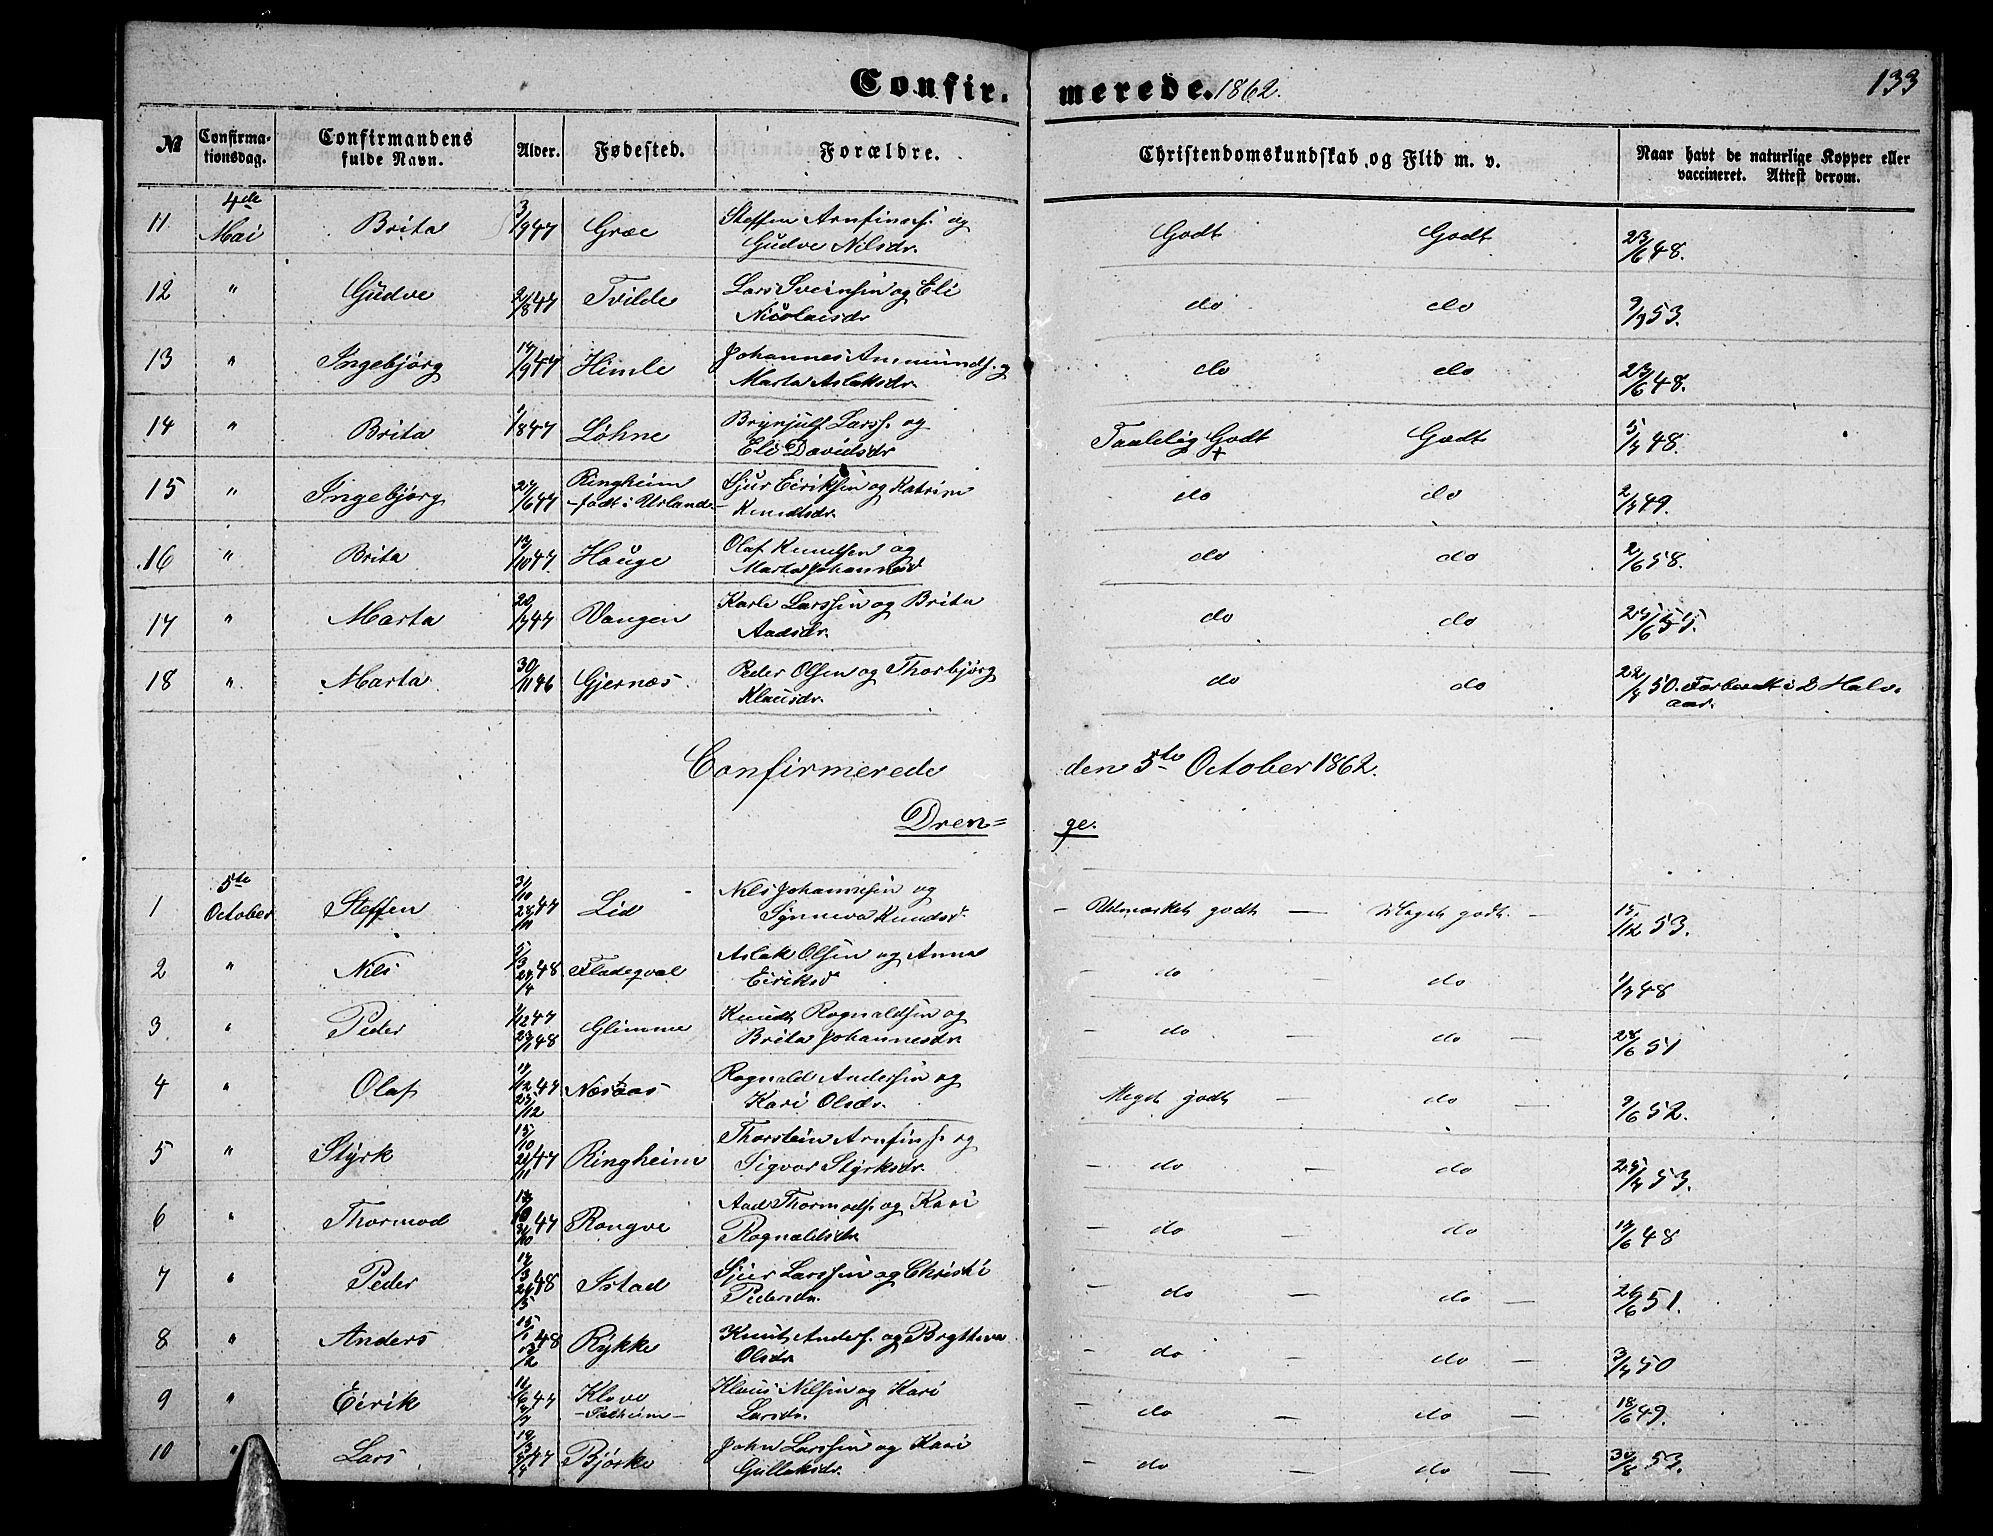 Confirmerede. 1862. 133
№ Confirmationsdag. Confirmandens fulde Navn. Alder. Fødested. Forældre. Christendomskundskab og Flid m. v. Naar havt de naturlige Kopper eller vaccineret. Attest derom.
11 4de Mai Brita 3/9 47 Græe Steffen Arnfinsf. og Gudve Nilsdr. Godt Godt 23/6 48.
12 " Gudve 2/8 47 Tvilde Lars Sveinsen og Eli Nicolaisdr do do 9/9 53.
13 " Ingebjørg 14/9 47 Himle Johannes Ammundsf. og Marta Aslaksdr. do do 23/6 48.
14 " Brita 1/8 47 Løhne Brynjulf Larsf. og Eli Davidsdr Taalelig Godt Godt 5/7 48.
15 " Ingebjørg 27/6 47 Ringheim født i Urland Sjur Eiriksen og Katrine Knudtsdr. do do 2/7 49.
16 " Brita 13/10 47. Hauge Olaf Knudsen og Marta Johannesd do do 2/6 58.
17 " Marta 20/7 47 Vangen Karle Larssen og Brita Aadsdr. do do 25/6 55.
18 " Marta 30/11 46 Gjernæs. Peder Olsen og Thorbjørg Klausdr. do do 22/7 50. Forberedt i 2 Halvaar.
Confirmerede den 5te October 1862.
Drenge.
1 5te October Steffen 31/10 28/11 47 Lid Nils Johannesen og Synneva Knudsd. Udmærket godt — Meget godt. — 15/12 53.
2 " Nils 5/3 24/4 48 Fladeqval Aslak Olsen og Anna Eiriksd - do do 1/7 48
3. " Peder 1/12 47 23/1 48 Glimme Knudt Rognaldsen og Brita Johannesdr. - do do — 28/6 51
4 " Olaf 14/12 47 25/12 Næsaas Rognald Andersen og Kari Olsdr. Meget godt do — 9/6 52.
5 " Styrk 15/10 21/11 47 Ringheim Thorstein Arnfinsf. og Sigvor Styrksdr. - do — do 25/7 53.
6 " Thormod 31/10 47 Rongve Aad Thormodsf. og Kari Rognaldsdr. - do — do 14/6 48
7 " Peder 48 Istad Sjur Larssen og Christi Pedersdr. - do — do — 26/6 51.
8 " Anders 15/1 48 Rykke Knut Andersf. og Brytteva Olsdr. - do — do — 3/7 50
9 " Eirik 47 Kløve - Palheim - Klaus Nilsen og Kari Larsdr. - do — do — 18/6 49.
10 " Lars 47 Bjørke John Larssen og Kari Gullaksdr. - do — do — 30/8 53.